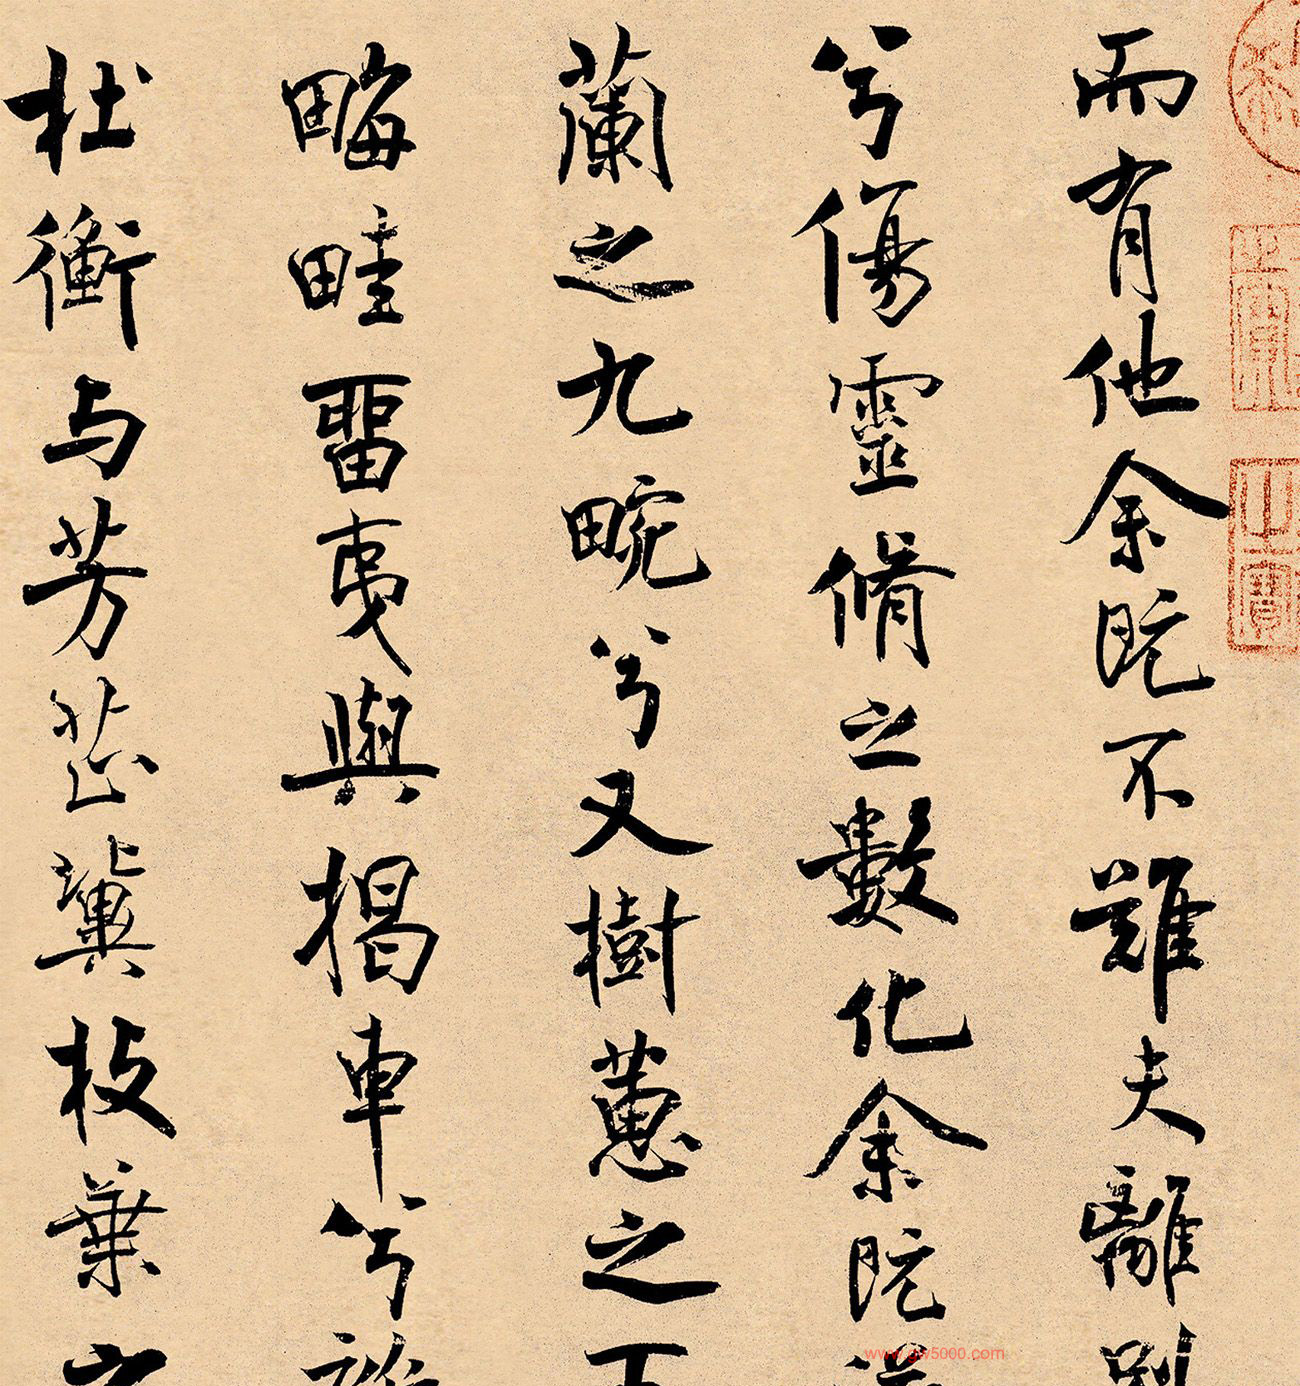 而有他余既不難夫離別
兮傷靈脩之數化余既
蘭之九畹兮又樹蕙之
畮畦留夷與揭車兮
杜衡与芳芷冀枝葉之
www.gw5000.com